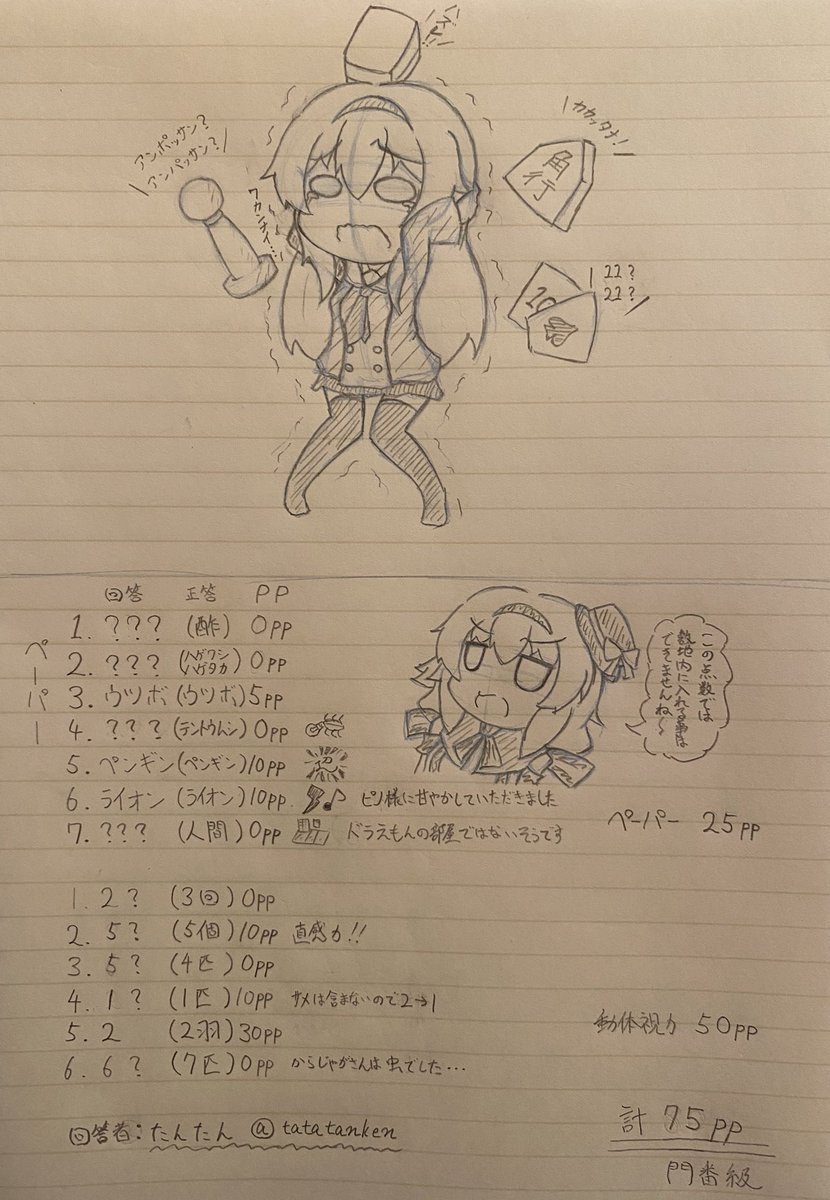 アンポッサン?
アンパッサン?
ワカンナイ…
カカッタナ!
角行
22?
22?
10
回答 正答 PP
ペーパー
1. ??? (酢) 0pp
2. ??? (ハゲワシ ハゲタカ) 0pp
3. ウツボ (ウツボ) 5pp
4. ??? (テントウムシ) 0pp
5. ペンギン (ペンギン) 10pp
6. ライオン (ライオン) 10pp ピノ様に甘やかしていただきました
7. ??? (人間) 0pp ドラえもんの部屋ではないそうです
この点数では
敷地内に入れる事は
できませんね〜
ペーパー 25pp
1. 2? (3回) 0pp
2. 5? (5個) 10pp 直感力!!
3. 5? (4匹) 0pp
4. 1? (1匹) 10pp サメは含まないので2→1
5. 2 (2羽) 30pp
6. 6? (7匹) 0pp からじゃがさんは虫でした…
動体視力 50pp
計 75pp
門番級
回答者:たんたん @tatatanken